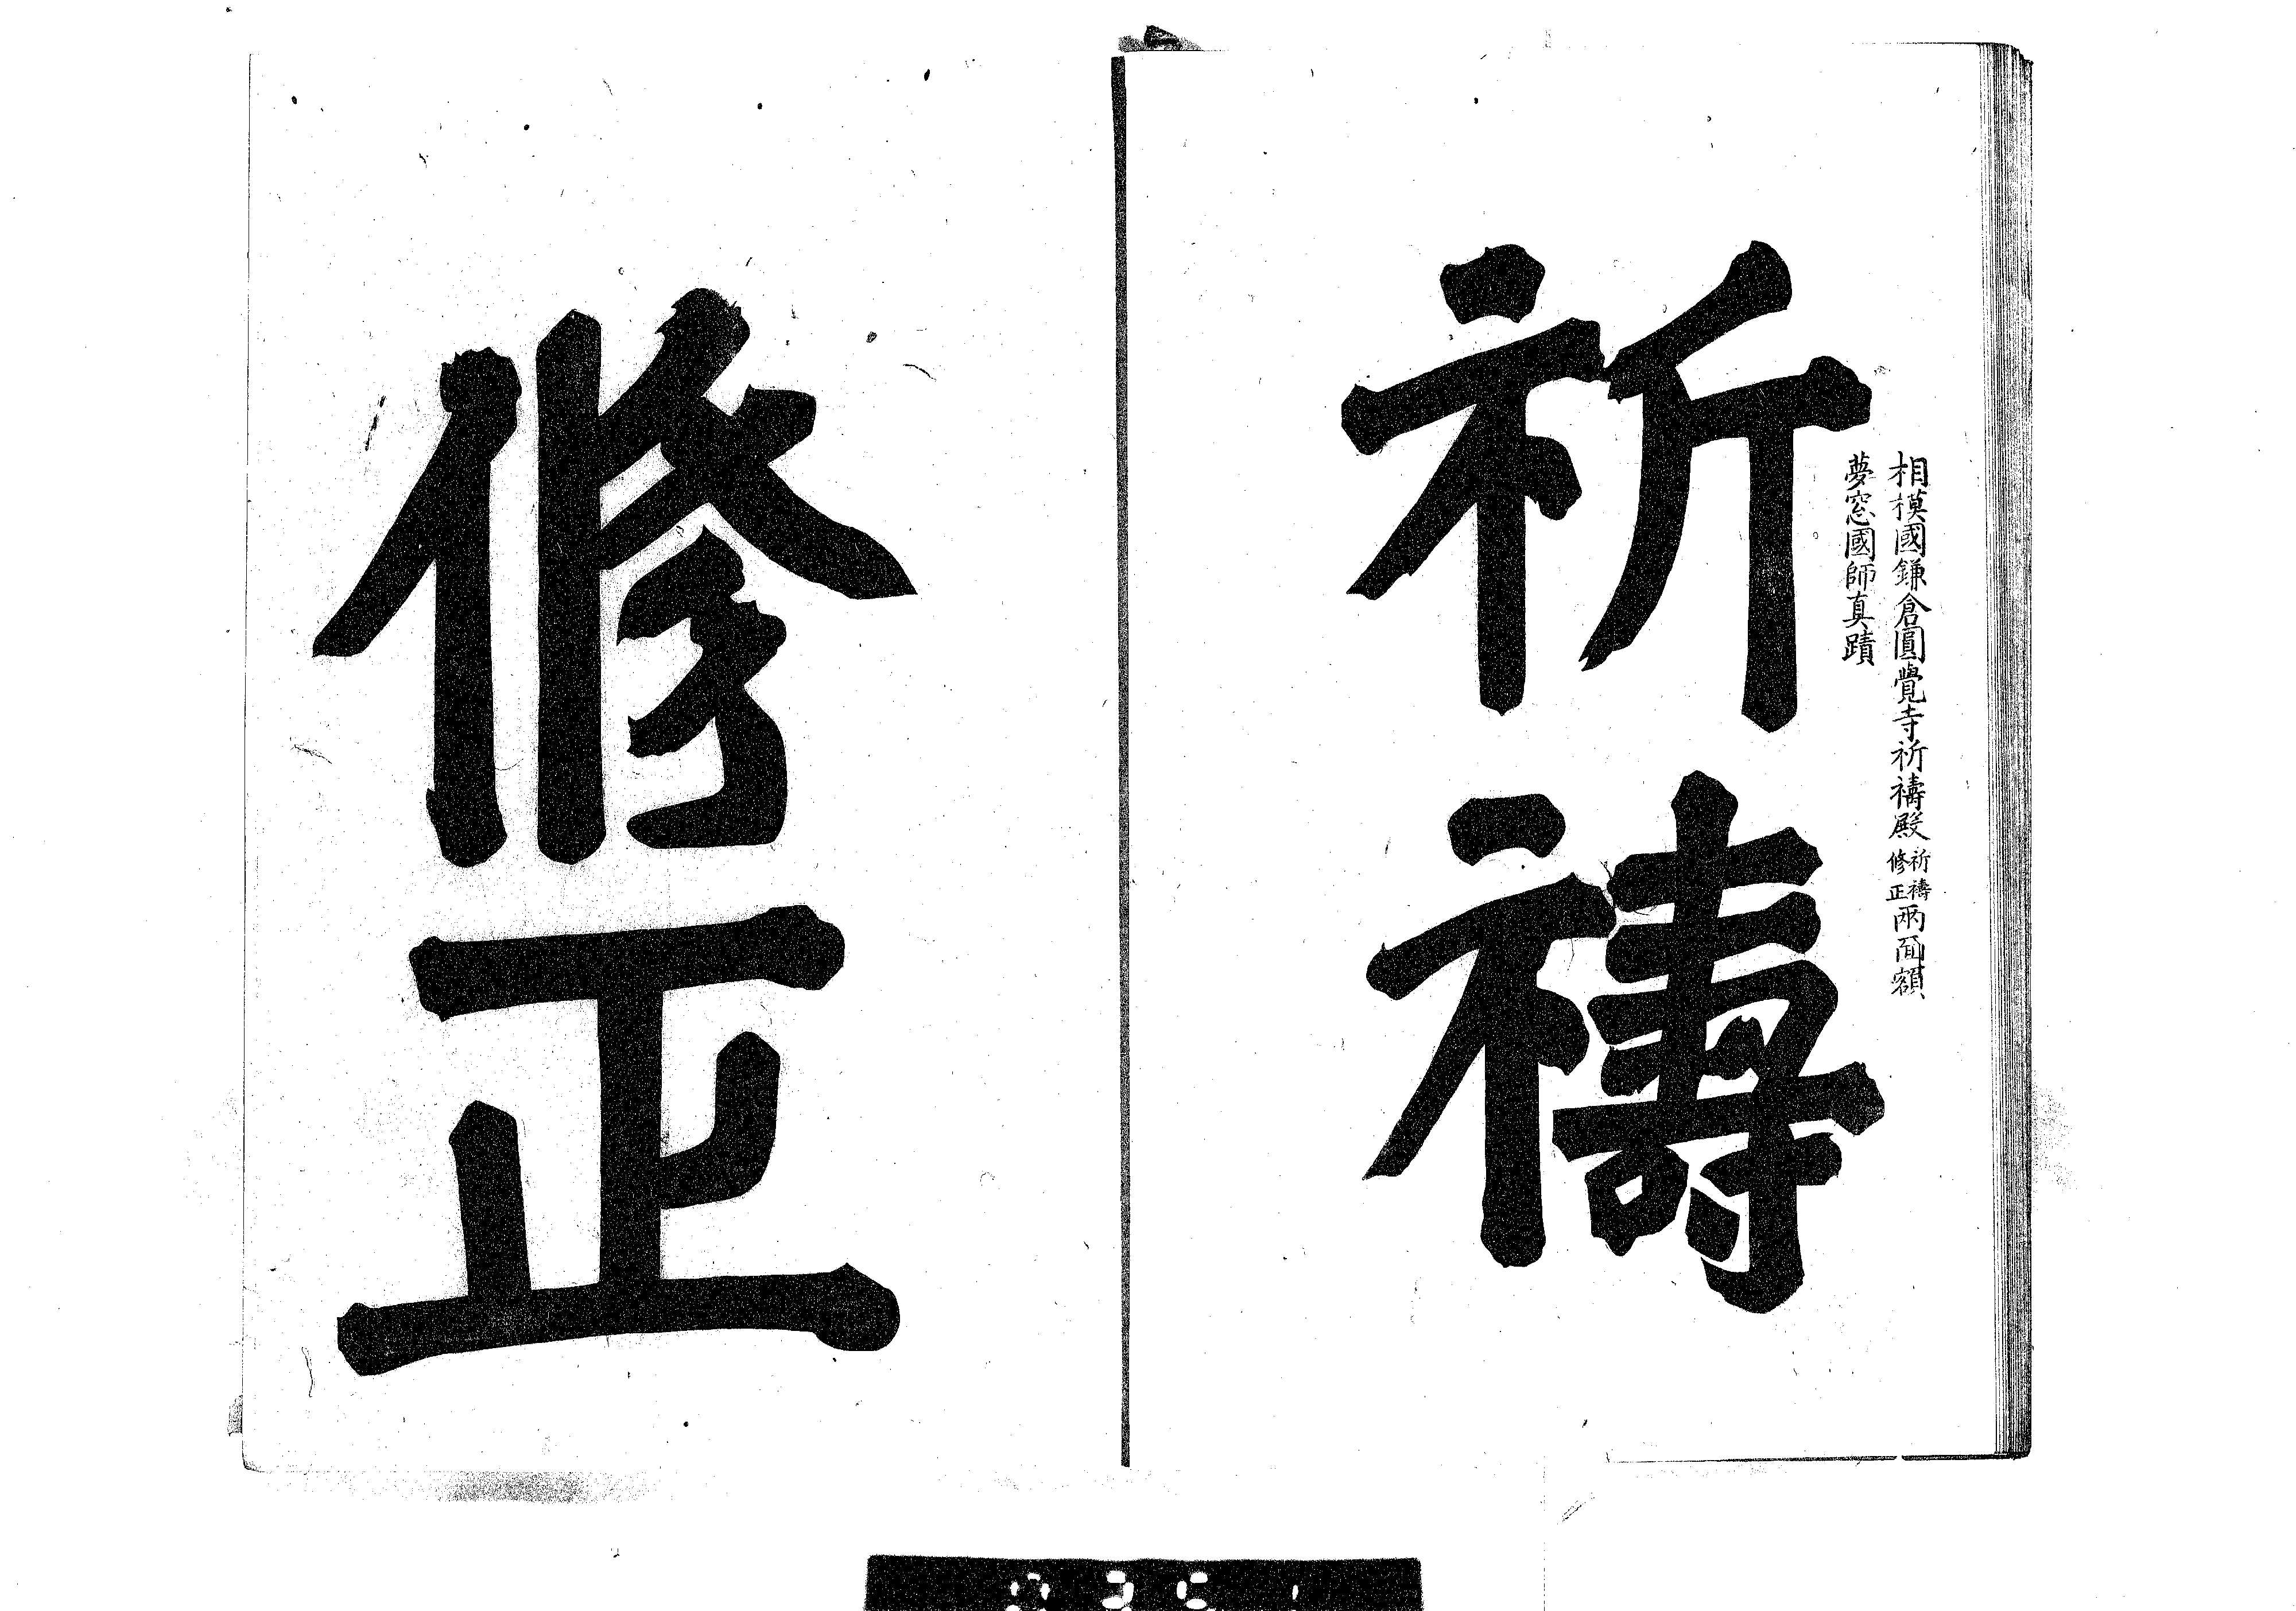 相模國鎌倉圓覺寺祈禱殿祈禱修正兩面額
夢窓國師真蹟
祈禱
修正